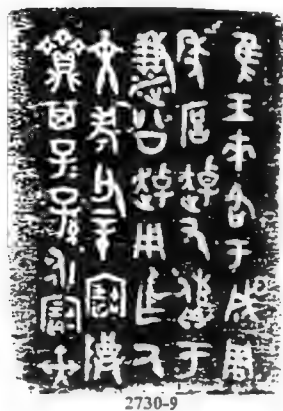 隹王來各于成周
年厚趠又償于
溓公趠用乍氒
文考父辛寶尊
齍其子子孫孫永寶朿
2730-9